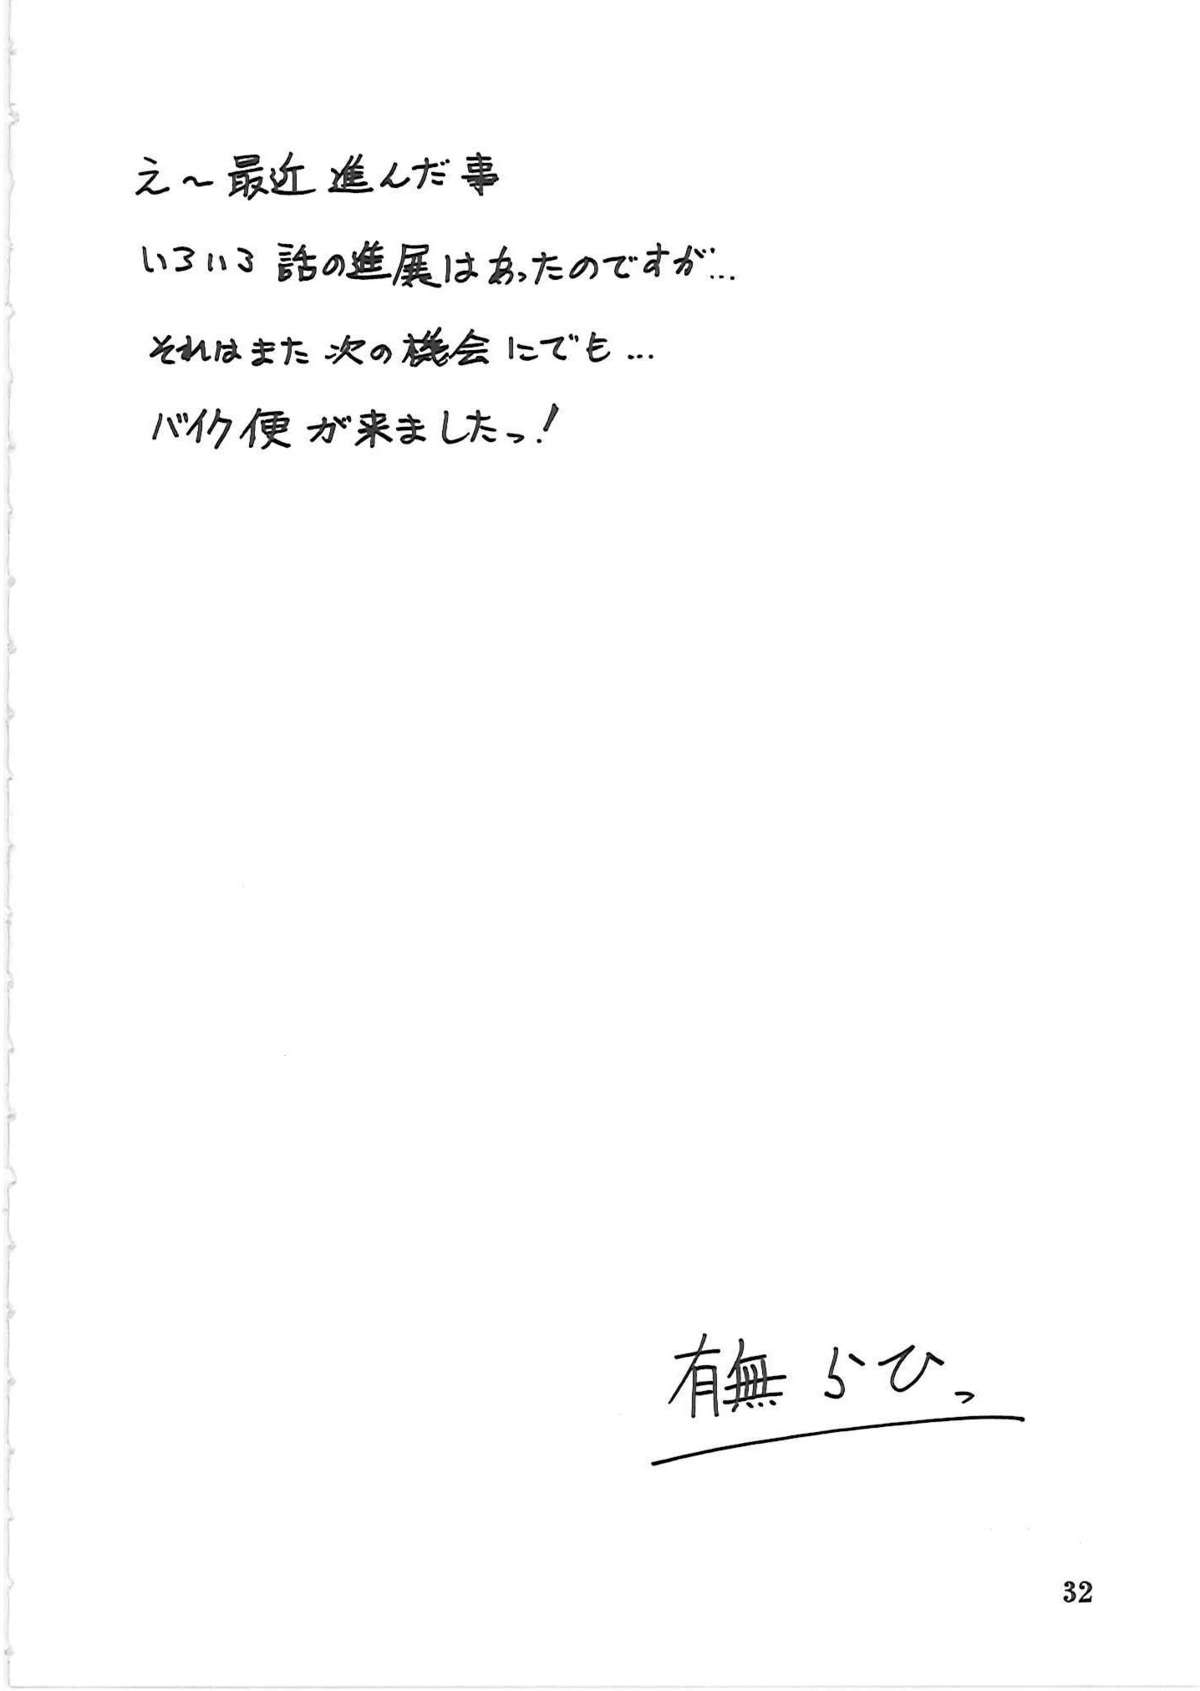 え～最近 進んだ事
いろいろ 話の進展はあったのですが…
それはまた 次の機会にでも…
バイク便 が来ましたっ!
有無らひっ
32